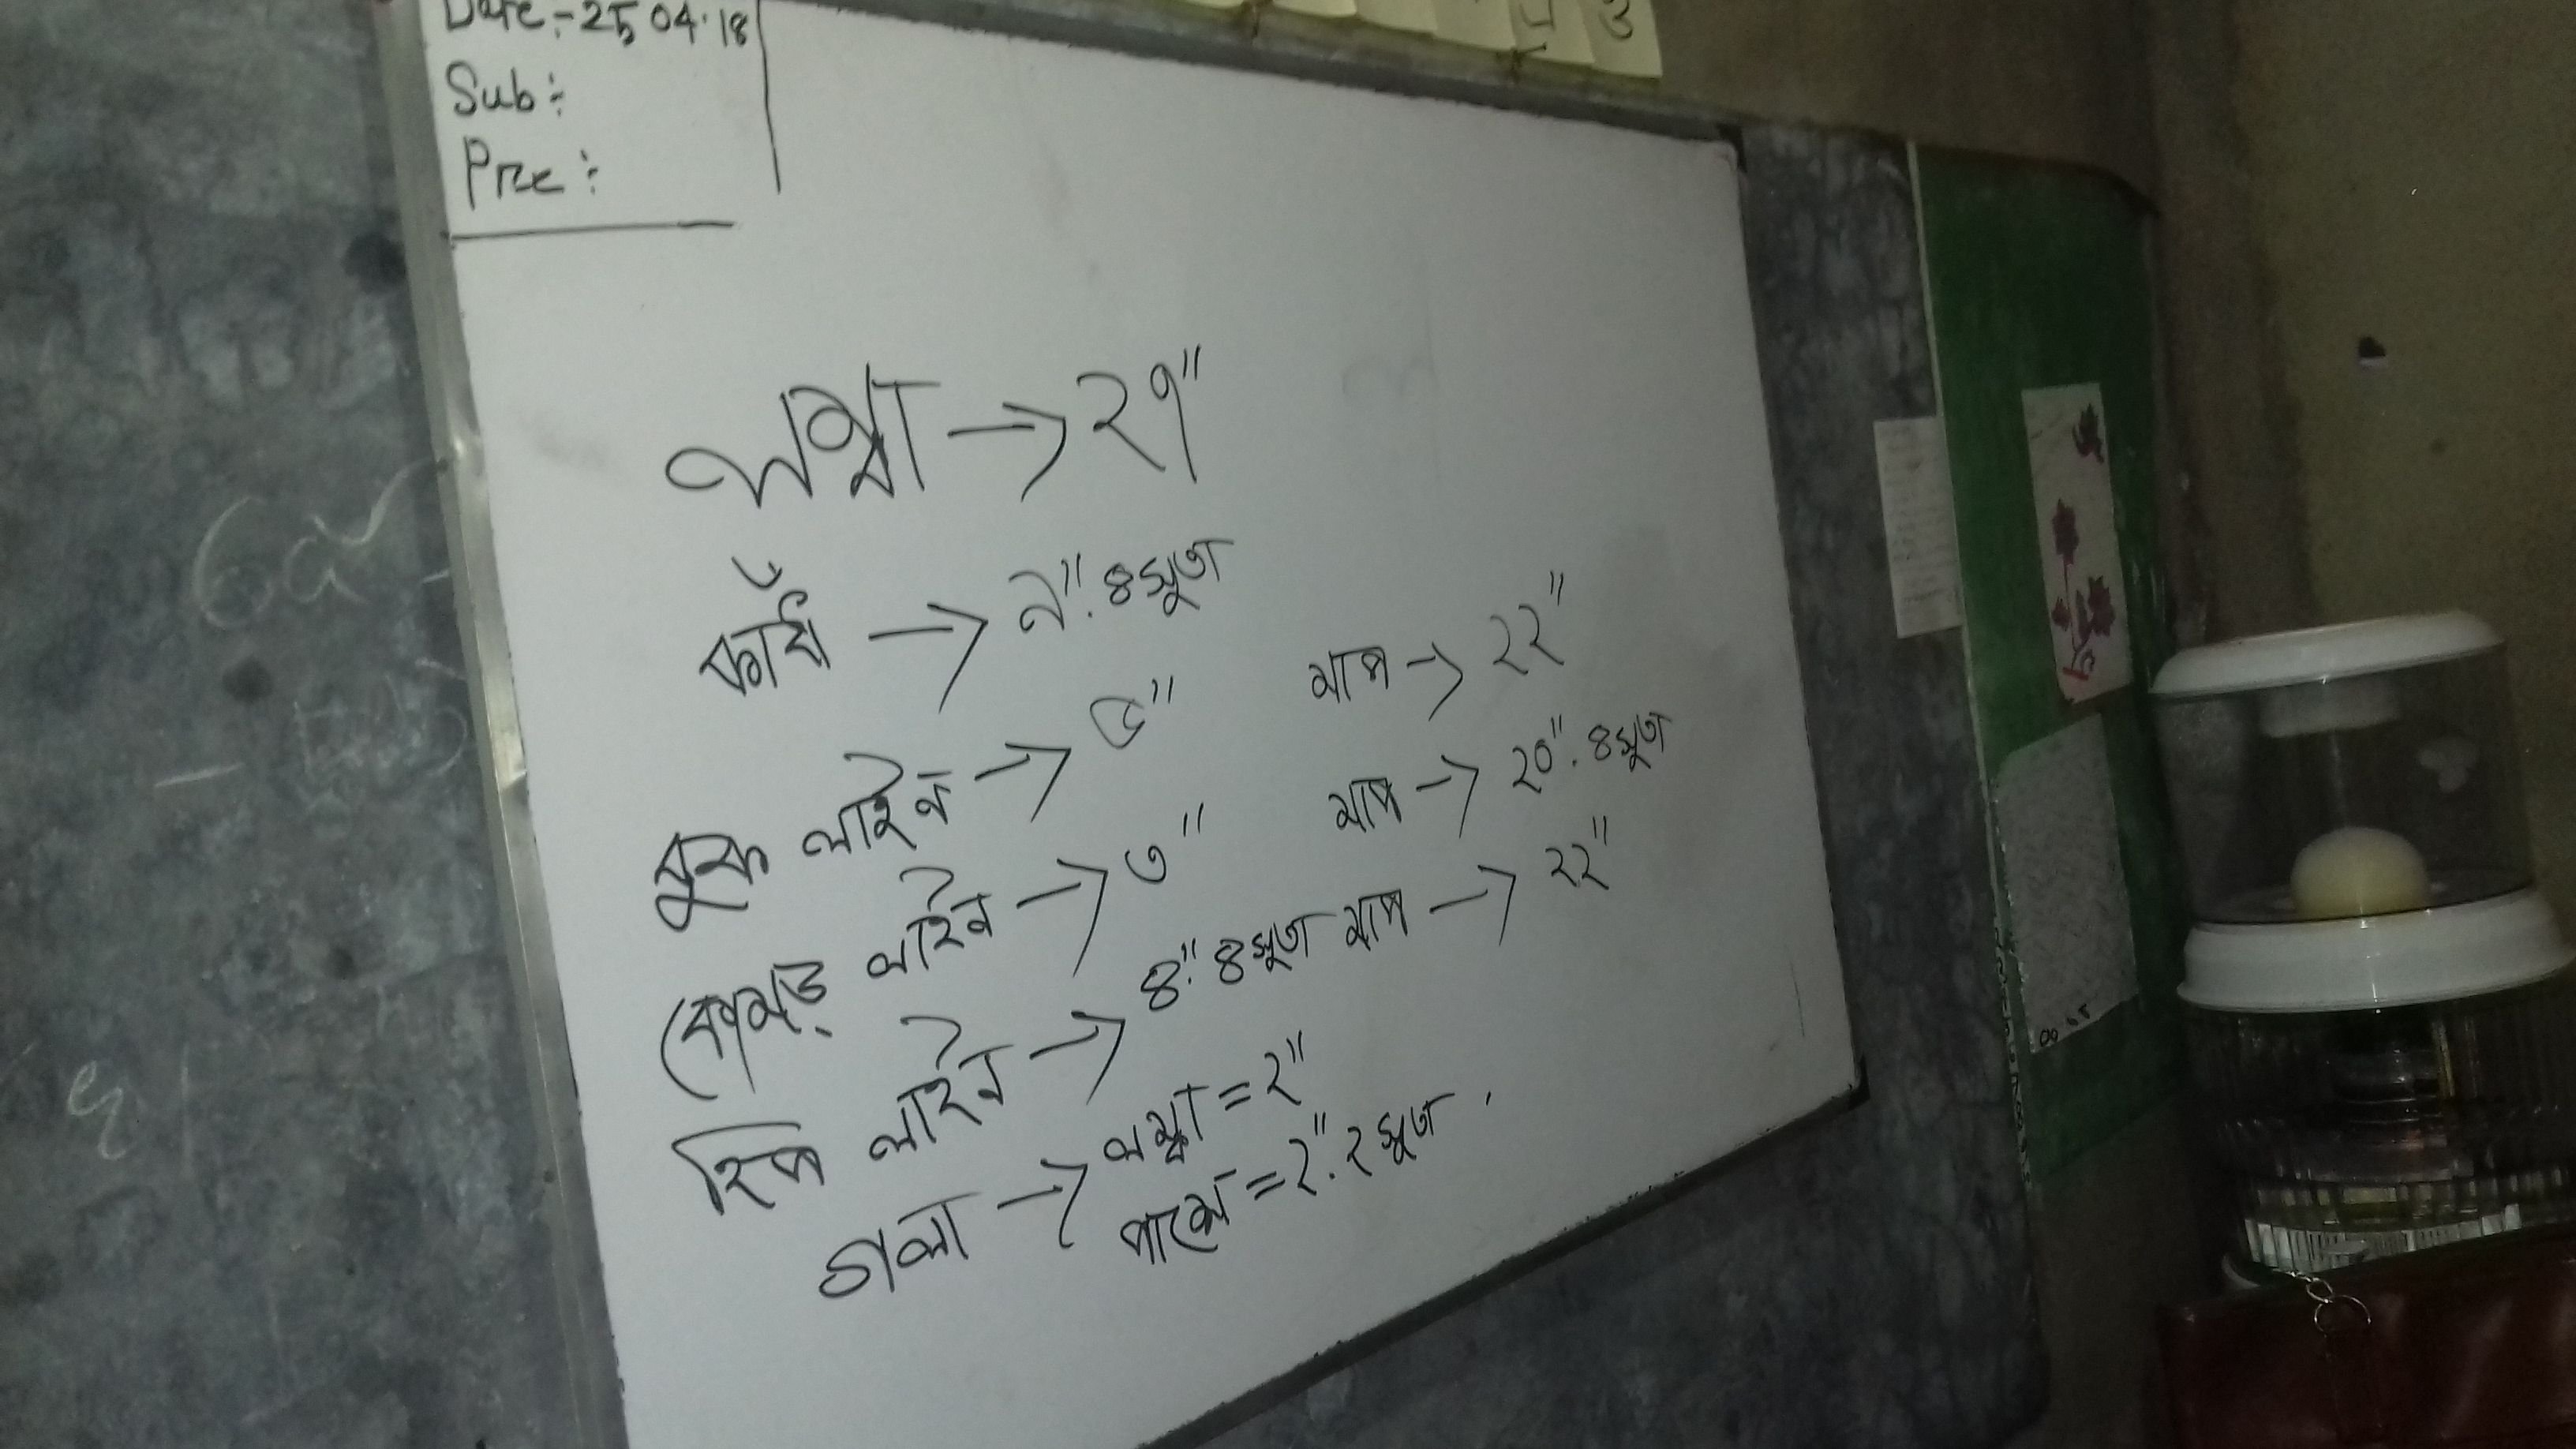 Date:- 25 04.18
Sub÷
Pre÷
লম্বা → ২৭"
কাঁধ → ৯". ৪সুতা
বুক লাইন → ৫" মাপ → ২২"
কোমড় লাইন → ৩" মাপ → ২০". ৪সুতা
হিপ লাইন → ৪". ৪সুতা মাপ → ২২"
গলা → লম্বা = ২"
পাশে = ২". ২ সুতা.